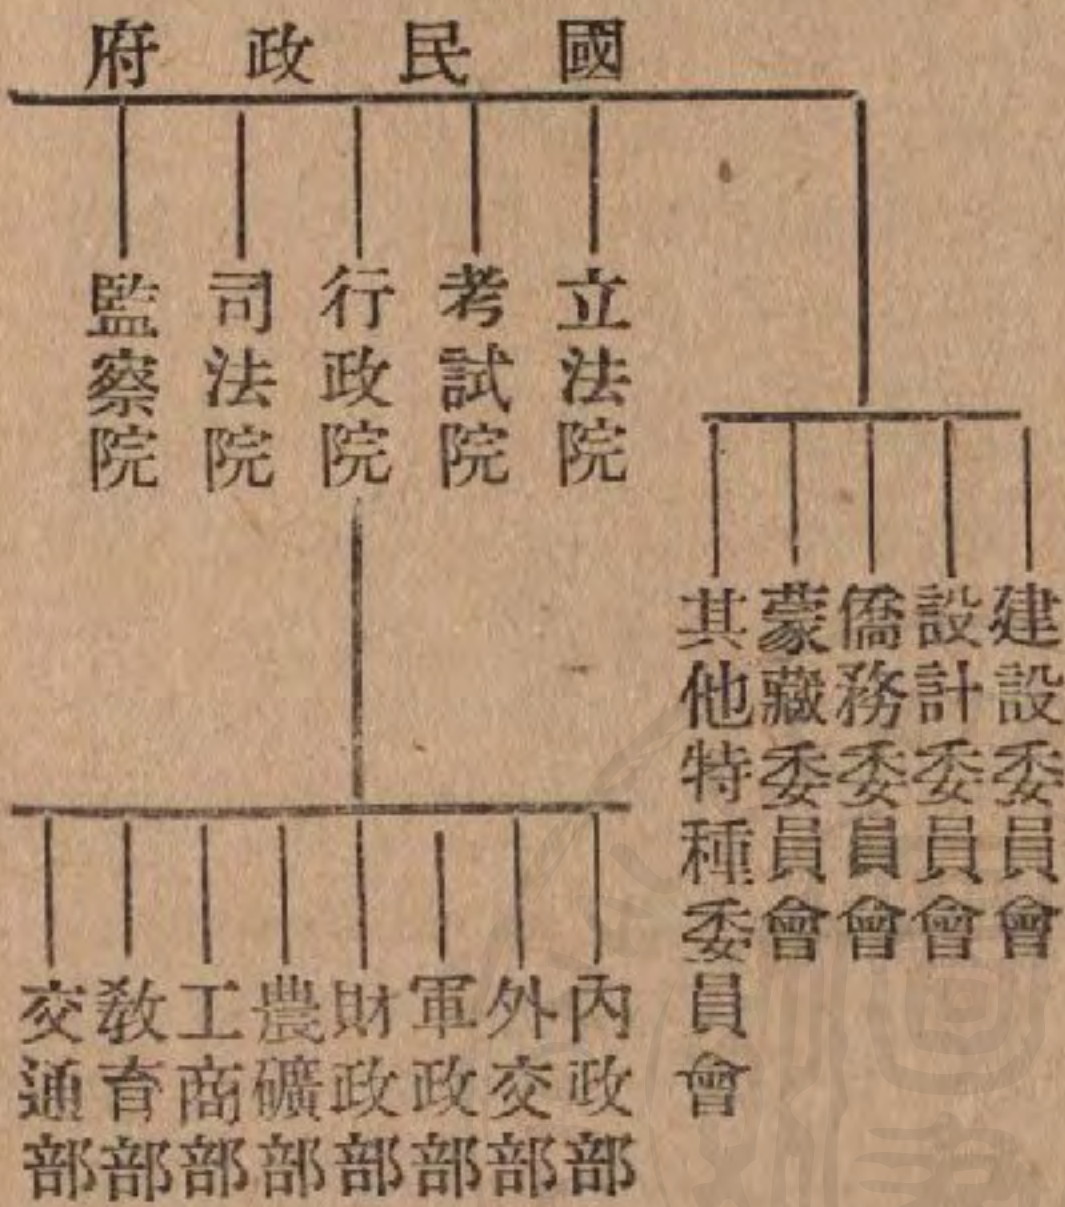 國民政府
立法院
考試院
行政院
司法院
監察院
建設委員會
設計委員會
僑務委員會
蒙藏委員會
其他特種委員會
內政部
外交部
軍政部
財政部
農礦部
工商部
教育部
交通部